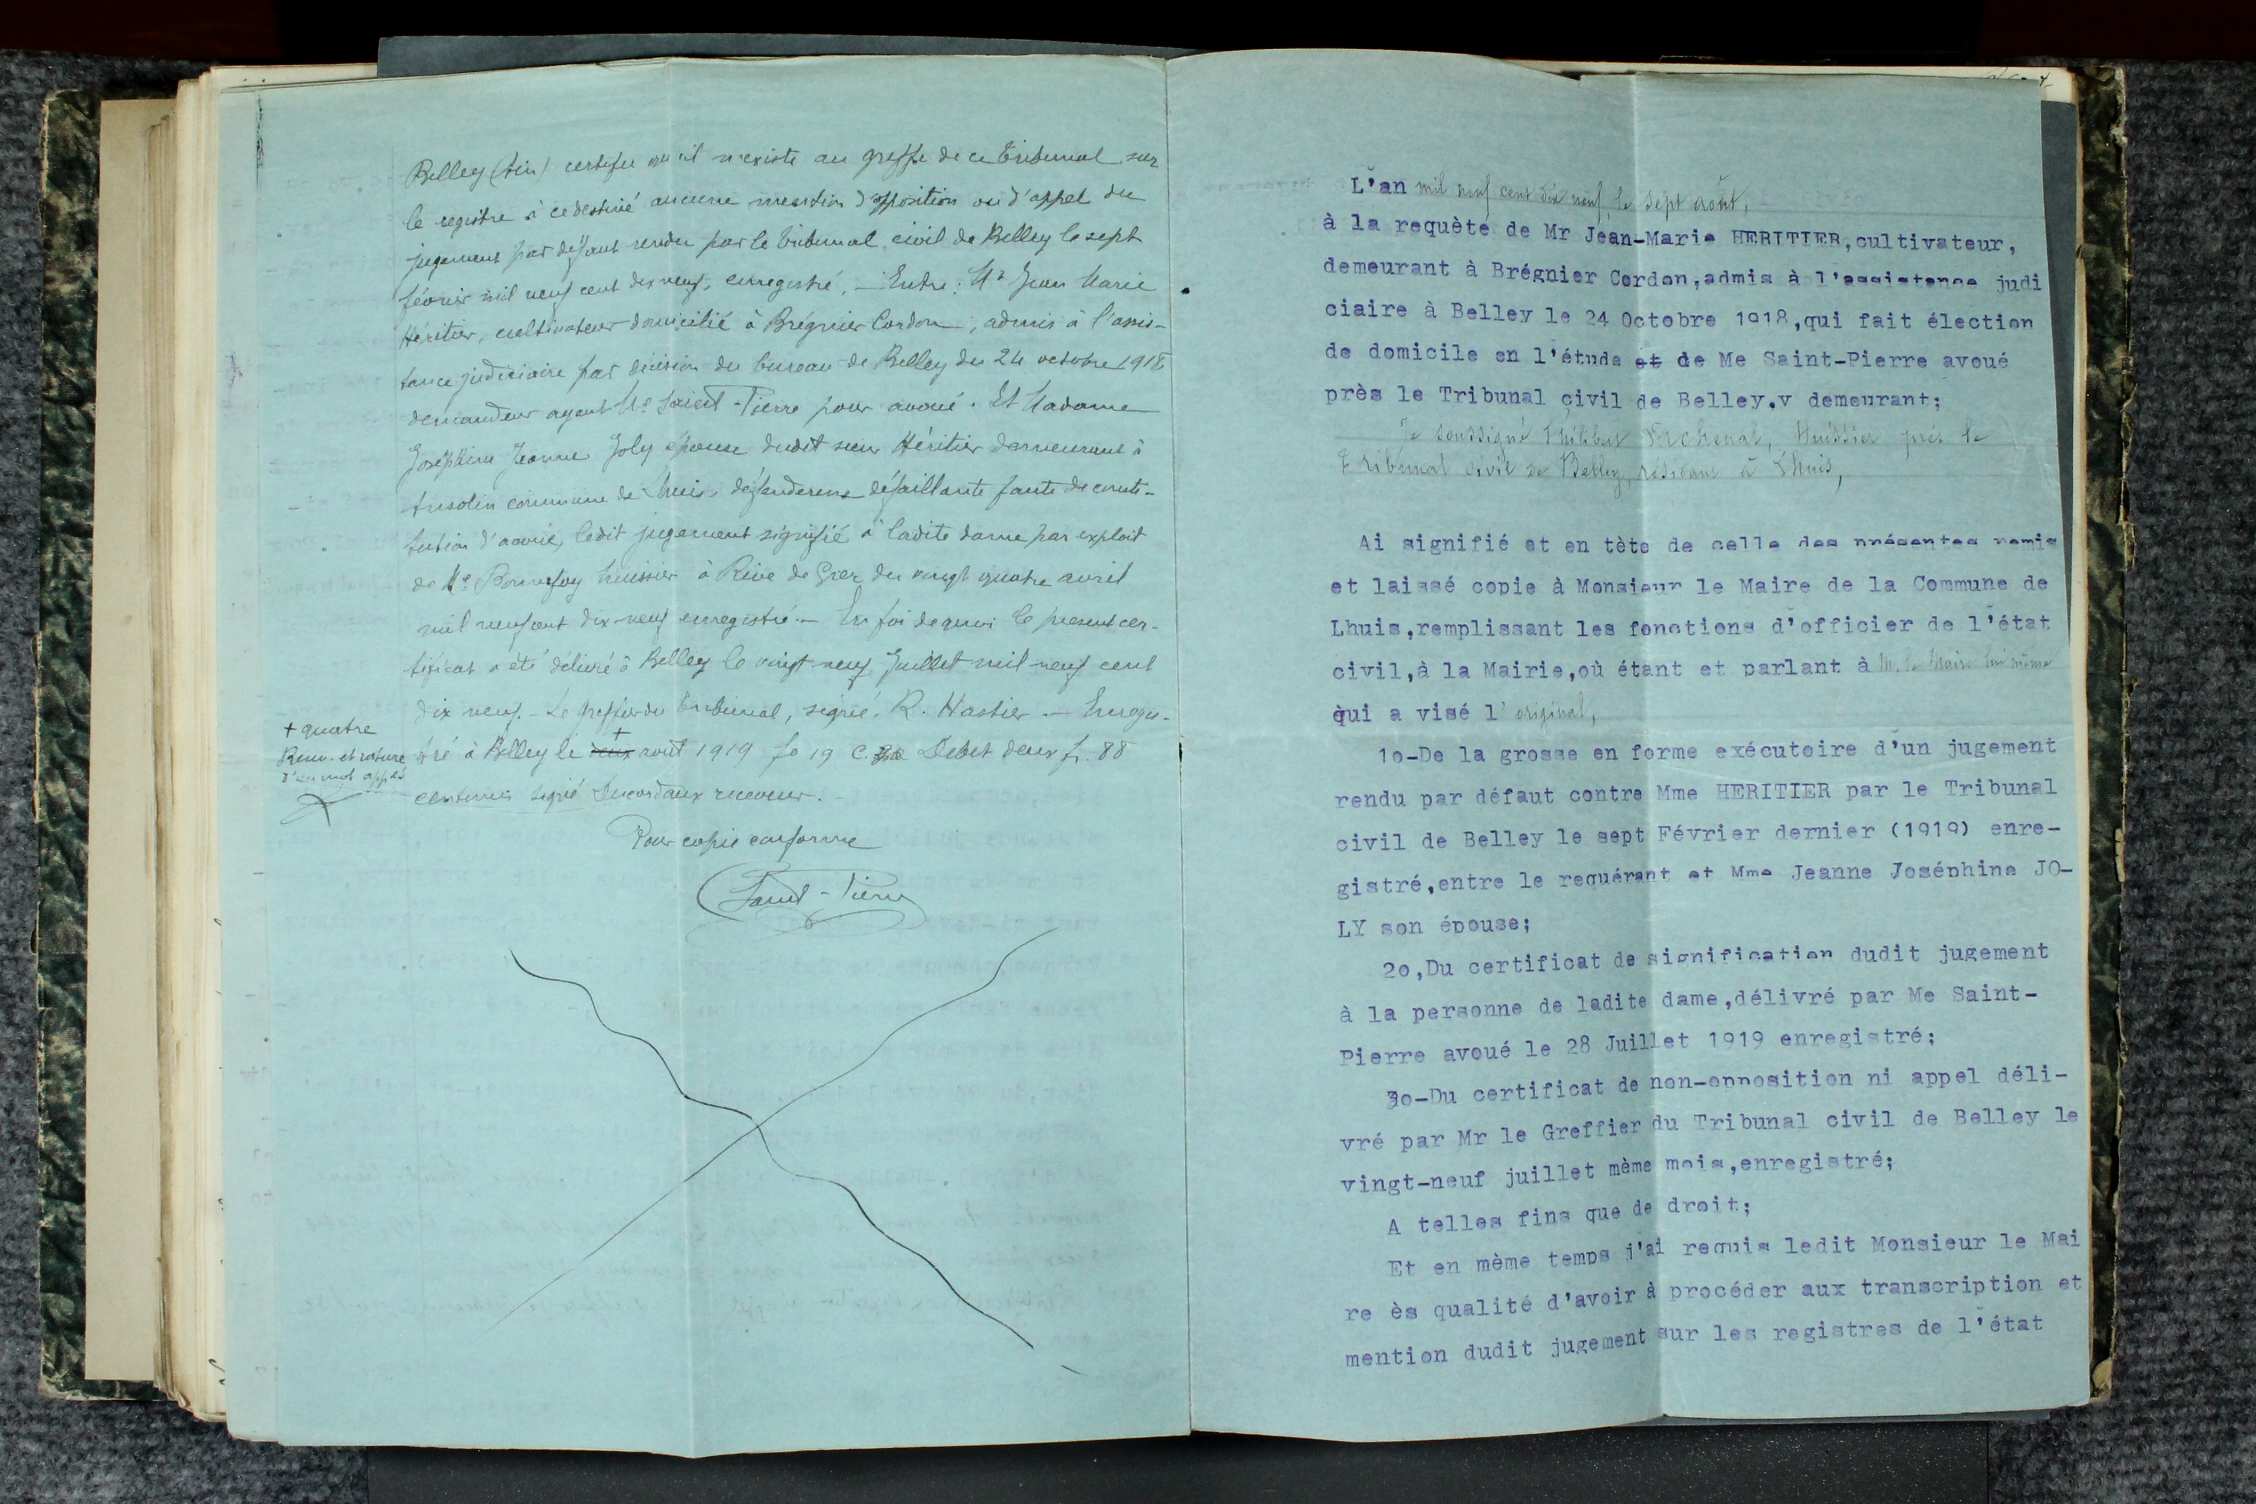 Belley (Ain) certifie qu'il n'existe au greffe de ce Tribunal sur
le registre à ce destiné aucune mention d'opposition ou d'appel du
jugement par défaut rendu par le Tribunal civil de Belley le sept
février mil neuf cent dix neuf, enregistré. — Entre: Mr Jean Marie
Héritier, cultivateur domicilié à Brégnier Cordon, admis à l'assis-
tance judiciaire par décision du bureau de Belley du 24 octobre 1918
demandeur ayant Me Saint-Pierre pour avoué. Et Madame
Joséphine Jeanne Joly épouse dudit sieur Héritier demeurant à
Ansolin commune de Lhuis défenderesse défaillante faute de consti-
tution d'avoué, ledit jugement signifié à ladite dame par exploit
de Me Bonnefoy huissier à Rive de Gier du vingt quatre avril
mil neuf cent dix-neuf enregistré. — En foi de quoi le présent cer-
tificat a été délivré à Belley le vingt neuf Juillet mil neuf cent
dix neuf. - Le Greffier du Tribunal, signé. R. Hastier. — Enregis-
+ quatre
tré à Belley le deux + août 1919 fo 19 C. Debet deux fr. 88
Renv. et rature
d'un mot app.és
centimes signé receveur. -
Pour copie conforme
Saint-Pierre
L'an mil neuf cent dix neuf, le sept août,
à la requète de Mr Jean-Marie HERITIER,cultivateur,
demeurant à Brégnier Cordon,admis à l'assistance judi
ciaire à Belley le 24 Octobre 1918,qui fait élection
de domicile en l'étude et de Me Saint-Pierre avoué
près le Tribunal civil de Belley.y demeurant;
Je soussigné Philibert Huissier près le
Tribunal civil de Belley, résidant à Lhuis,
Ai signifié et en tète de celle des présentes remis
et laissé copie à Monsieur le Maire de la Commune de
Lhuis,remplissant les fonctions d'officier de l'état
civil,à la Mairie,où étant et parlant à M. le Maire lui même
qui a visé l'original,
1o-De la grosse en forme exécutoire d'un jugement
rendu par défaut contre Mme HERITIER par le Tribunal
civil de Belley le sept Février dernier (1919) enre-
gistré,entre le requérant et Mme Jeanne Joséphine JO-
LY son épouse;
2o,Du certificat de signification dudit jugement
à la personne de ladite dame,délivré par Me Saint-
Pierre avoué le 28 Juillet 1919 enregistré;
3o-Du certificat de non-opposition ni appel déli-
vré par Mr le Greffier du Tribunal civil de Belley le
vingt-neuf juillet mème mois,enregistré;
A telles fins que de droit;
Et en mème temps j'ai requis ledit Monsieur le Mai
re ès qualité d'avoir à procéder aux transcription et
mention dudit jugement sur les registres de l'état